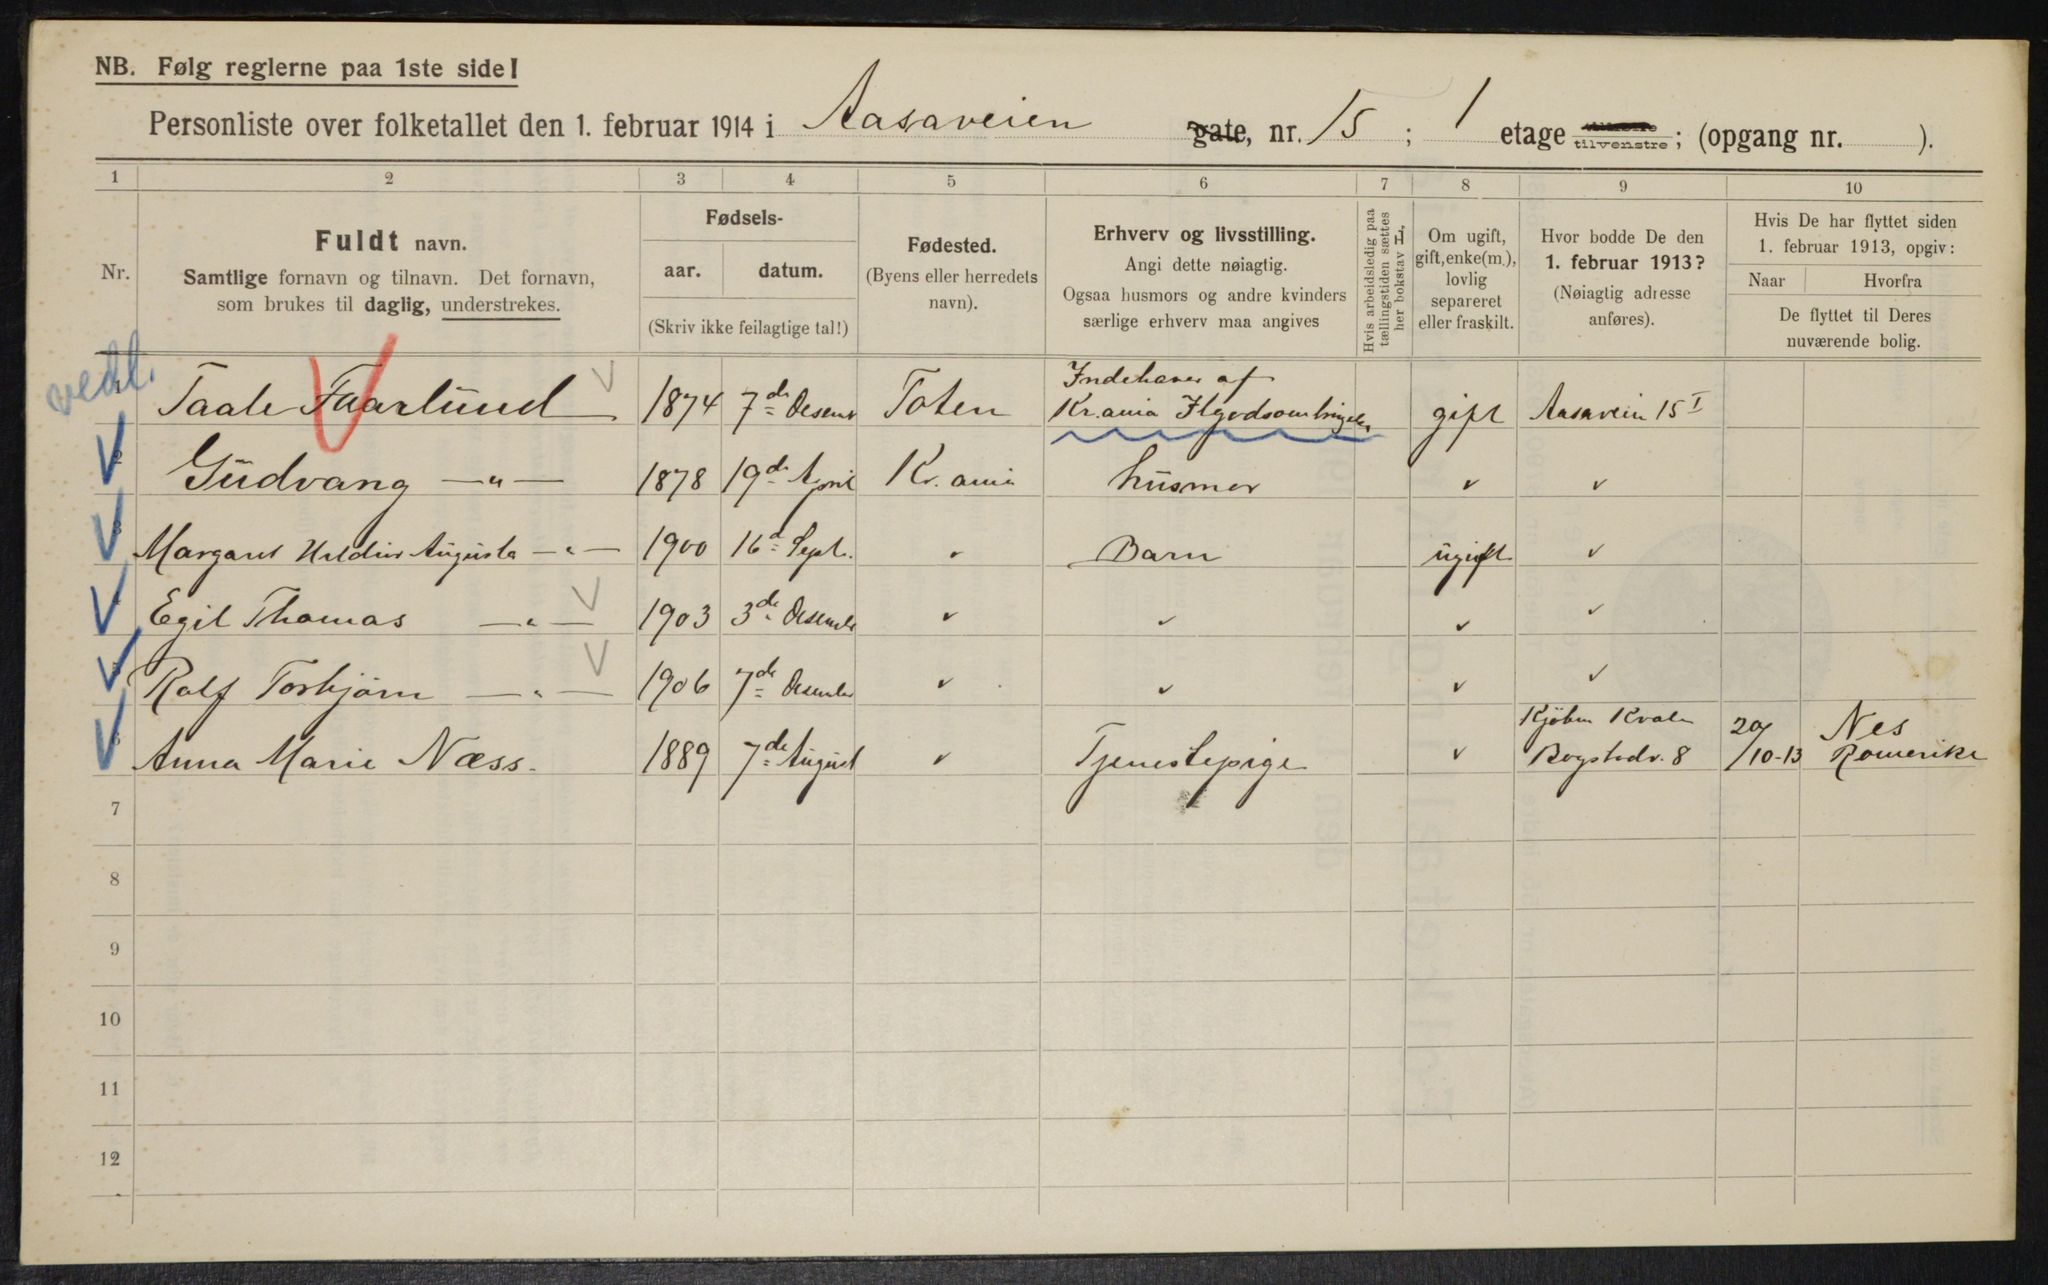 NB. Følg reglerne paa 1ste side!
Personliste over folketallet den 1. februar 1914 i Aasaveien gate, nr. 15; 1 etage tilvenstre; (opgang nr. ).
1 2 3 4 5 6 7 8 9 10
Nr.
Fuldt navn.
Samtlige fornavn og tilnavn. Det fornavn,
som brukes til daglig, understrekes.
Fødsels-
aar. datum.
(Skriv ikke feilagtige tal!)
Fødested.
(Byens eller herredets
navn).
Erhverv og livsstilling.
Angi dette nøiagtig.
Ogsaa husmors og andre kvinders
særlige erhverv maa angives
Hvis arbeidsledig paa
tællingstiden sættes
her bokstav H.
Om ugift,
gift, enke(m.),
lovlig
separeret
eller fraskilt.
Hvor bodde De den
1. februar 1913?
(Nøiagtig adresse
anføres).
Hvis De har flyttet siden
1. februar 1913, opgiv:
Naar Hvorfra
De flyttet til Deres
nuværende bolig.
vedl.
Taale Faarlund 1874 7de Desemb Toten Indehaver af Kr.ania Ilgodsombringelse gift Aasavein 15 I
2 Gudvang —„— 1878 19de April Kr.ania husmor ✓ ✓
3 Margaret Augusta —„— 1900 16d Sept. ✓ Barn ugift ✓
4 Egil Thomas —„— 1903 3de Desembr ✓ ✓ ✓ ✓
5 Rolf Torbjørn —„— 1906 7de Desember ✓ ✓ ✓ ✓
6 Anna Marie Næss. 1889 7de August ✓ Tjenestepige ✓ Bogstadv. 8 20/10-13 Nes Romerike
7
8
9
10
11
12